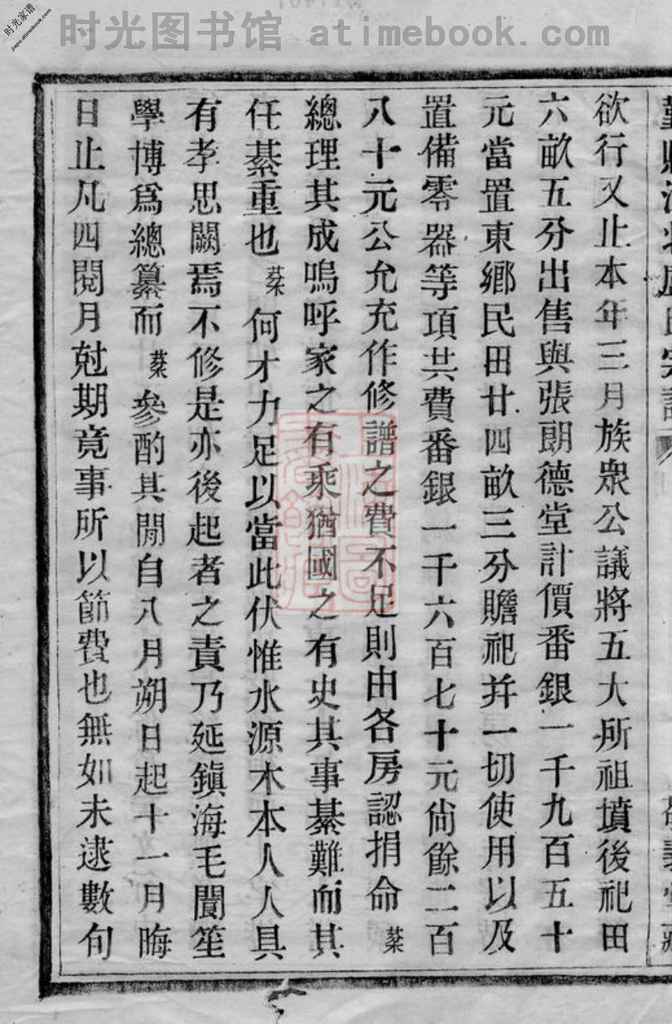 时光图书馆 - atimebook.com
时光家谱
www.atimebook.com
欲行又止本年三月族衆公議將五大所祖墳後祀田
六畝五分出售與張朗德堂計價番銀一千九百五十
元當置東鄉民田廿四畝三分贍祀并一切使用以及
置備零器等項共費番銀一千六百七十元尙餘二百
八十元公允充作修譜之費不足則由各房認捐命棻
總理其成嗚呼家之有乘猶國之有史其事綦難而其
任綦重也棻何才力足以當此伏惟水源木本人人具
有孝思闕焉不修是亦後起者之責乃延鎭海毛閬笙
學博爲總纂而棻參酌其閒自八月朔日起十一月晦
日止凡四閱月尅期竟事所以節費也無如未逮數旬